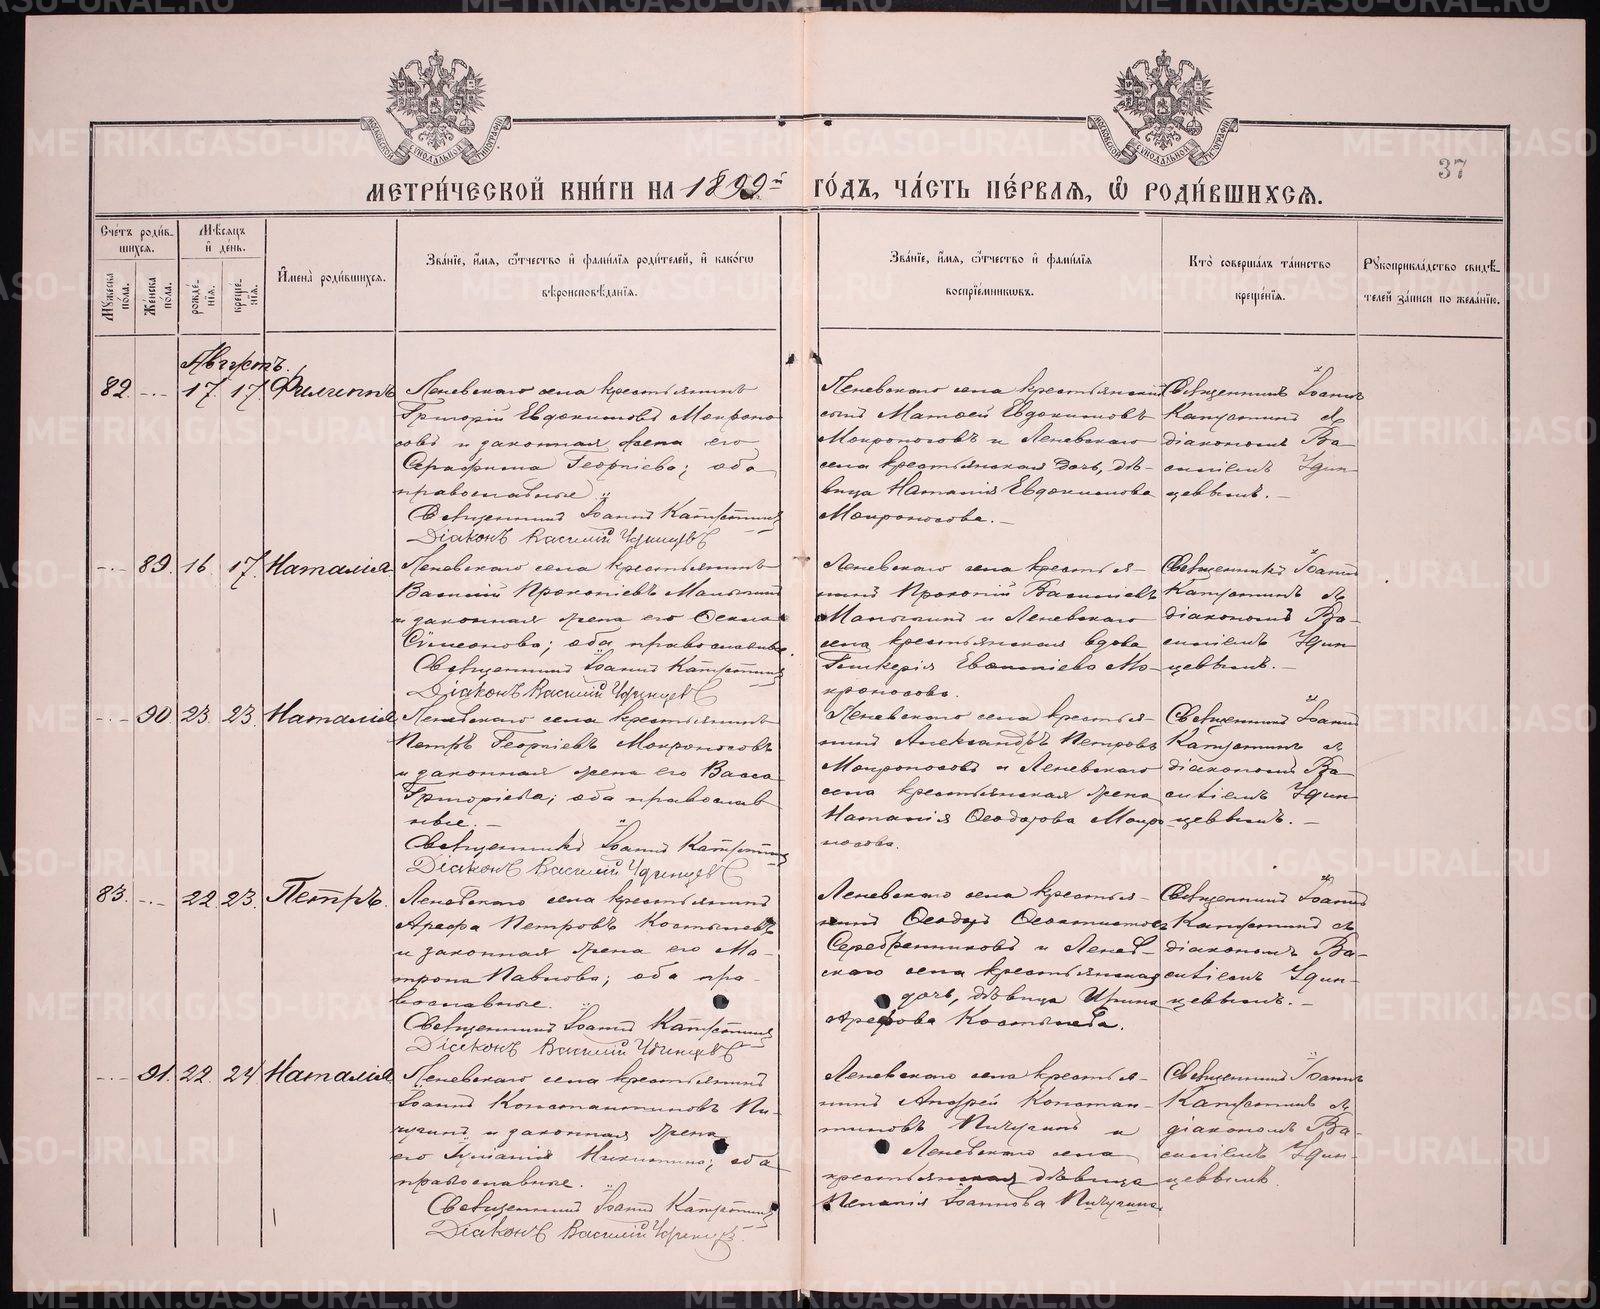 МОСКОВСКОЙ СѴНОДАЛЬНОЙ ТИПОГРАФІИ
МОСКОВСКОЙ СѴНОДАЛЬНОЙ ТИПОГРАФІИ
37
МЕТРИ́ЧЕСКОЙ КНИ́ГИ НА 1899й ГО́ДЪ, ЧА́СТЬ ПЕ́РВАѦ, Ѿ РОДИ́ВШИХСѦ.
Сче́тъ роди́в-
шихсѧ.
Мꙋ́жеска по́ла.
Же́нска по́ла.
Мѣ́сѧцъ
и҆ де́нь.
рожде́-
нїѧ.
креще́-
нїѧ.
И҆мена̀ роди́вшихсѧ.
Зва́нїе, и҆́мѧ, ѻ҆́тчество и҆ фами́лїѧ роди́телей, и҆ како́гѡ
вѣроисповѣ́данїѧ.
Зва́нїе, и҆́мѧ, ѻ҆́тчество и҆ фами́лїѧ
воспрїе́мникѡвъ.
Кто̀ соверша́лъ та́инство
креще́нїѧ.
Рꙋкоприкла́дство свидѣ́-
телей за́писи по жела́нїю.
Августъ.
82. -.- 17. 17. Филиппъ
Леневскаго села крестьянинъ
Григорій Евдокимовъ Мокроно-
совъ и законная жена его
Серафима Георгіева; оба
православные
Священникъ Іоаннъ Капустинъ
Діаконъ Василій Удинцевъ
Леневскаго села крестьянскій
сынъ Матѳей Евдокимовъ
Мокроносовъ и Леневскаго
села крестьянская дочь, дѣ-
вица Наталія Евдокимова
Мокроносова. -
Священникъ Іоаннъ
Капустинъ съ
діакономъ Ва-
силіемъ Удин-
цевымъ. -
-.- 89. 16. 17. Наталія
Леневскаго села крестьянинъ
Василій Прокопіевъ
и законная жена его Ѳекла
Сѵмеонова; оба православные.
Священникъ Іоаннъ Капустинъ
Діаконъ Василій Удинцевъ
Леневскаго села крестья-
нинъ Прокопій Васильевъ
и Леневскаго
села крестьянская вдова
Гликерія Мо-
кроносова.
Священникъ Іоаннъ
Капустинъ съ
діакономъ Ва-
силіемъ Удин-
цевымъ. -
-.- 90. 23. 23. Наталія
Леневскаго села крестьянинъ
Петръ Георгіевъ Мокроносовъ
и законная жена его Васса
Григоріева; оба православ-
ные. -
Священникъ Іоаннъ Капустинъ
Діаконъ Василій Удинцевъ
Леневскаго села крестья-
нинъ Александръ Петровъ
Мокроносовъ и Леневскаго
села крестьянская жена
Наталія Ѳеодорова Мокро-
носова.
Священникъ Іоаннъ
Капустинъ съ
діакономъ Ва-
силіемъ Удин-
цевымъ. -
83. -.- 22. 23. Петръ.
Леневскаго села крестьянинъ
Арефа Петровъ Костылевъ
и законная жена его Ма-
трона Павлова; оба пра-
вославные.
Священникъ Іоаннъ Капустинъ
Діаконъ Василій Удинцевъ
Леневскаго села крестья-
нинъ Ѳеодоръ Ѳеоктистовъ
Серебренниковъ и Ленев-
скаго села крестьянская
дочь, дѣвица Ирина
Арефова Костылева.
Священникъ Іоаннъ
Капустинъ съ
діакономъ Ва-
силіемъ Удин-
цевымъ. -
-.- 91. 22. 24. Наталія
Леневскаго села крестьянинъ
Іоаннъ Константиновъ Пи-
чугинъ и законная жена
его Іуліанія Никитина; оба
православные.
Священникъ Іоаннъ Капустинъ
Діаконъ Василій Удинцевъ.
Леневскаго села крестья-
нинъ Андрей Констан-
тиновъ Пичугинъ и
Леневскаго села
крестьянская дѣвица
Іоаннова Пичугина.
Священникъ Іоаннъ
Капустинъ съ
діакономъ Ва-
силіемъ Удин-
цевымъ.
METRIKI.GASO-URAL.RU